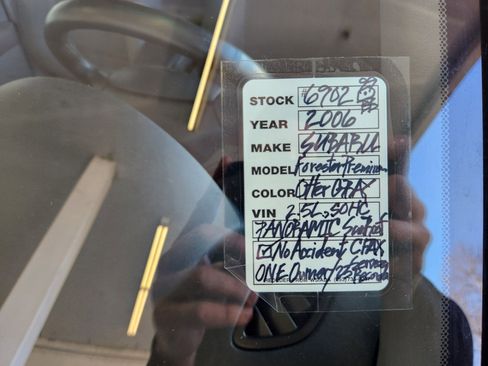 STOCK #6902
YEAR 2006
MAKE SUBARU
MODEL Forester Premium
COLOR Otter GRAY
VIN 2.5L, SOHC
PANORAMIC Sunroof
No Accident CFAX
ONE Owner/23 Service Records